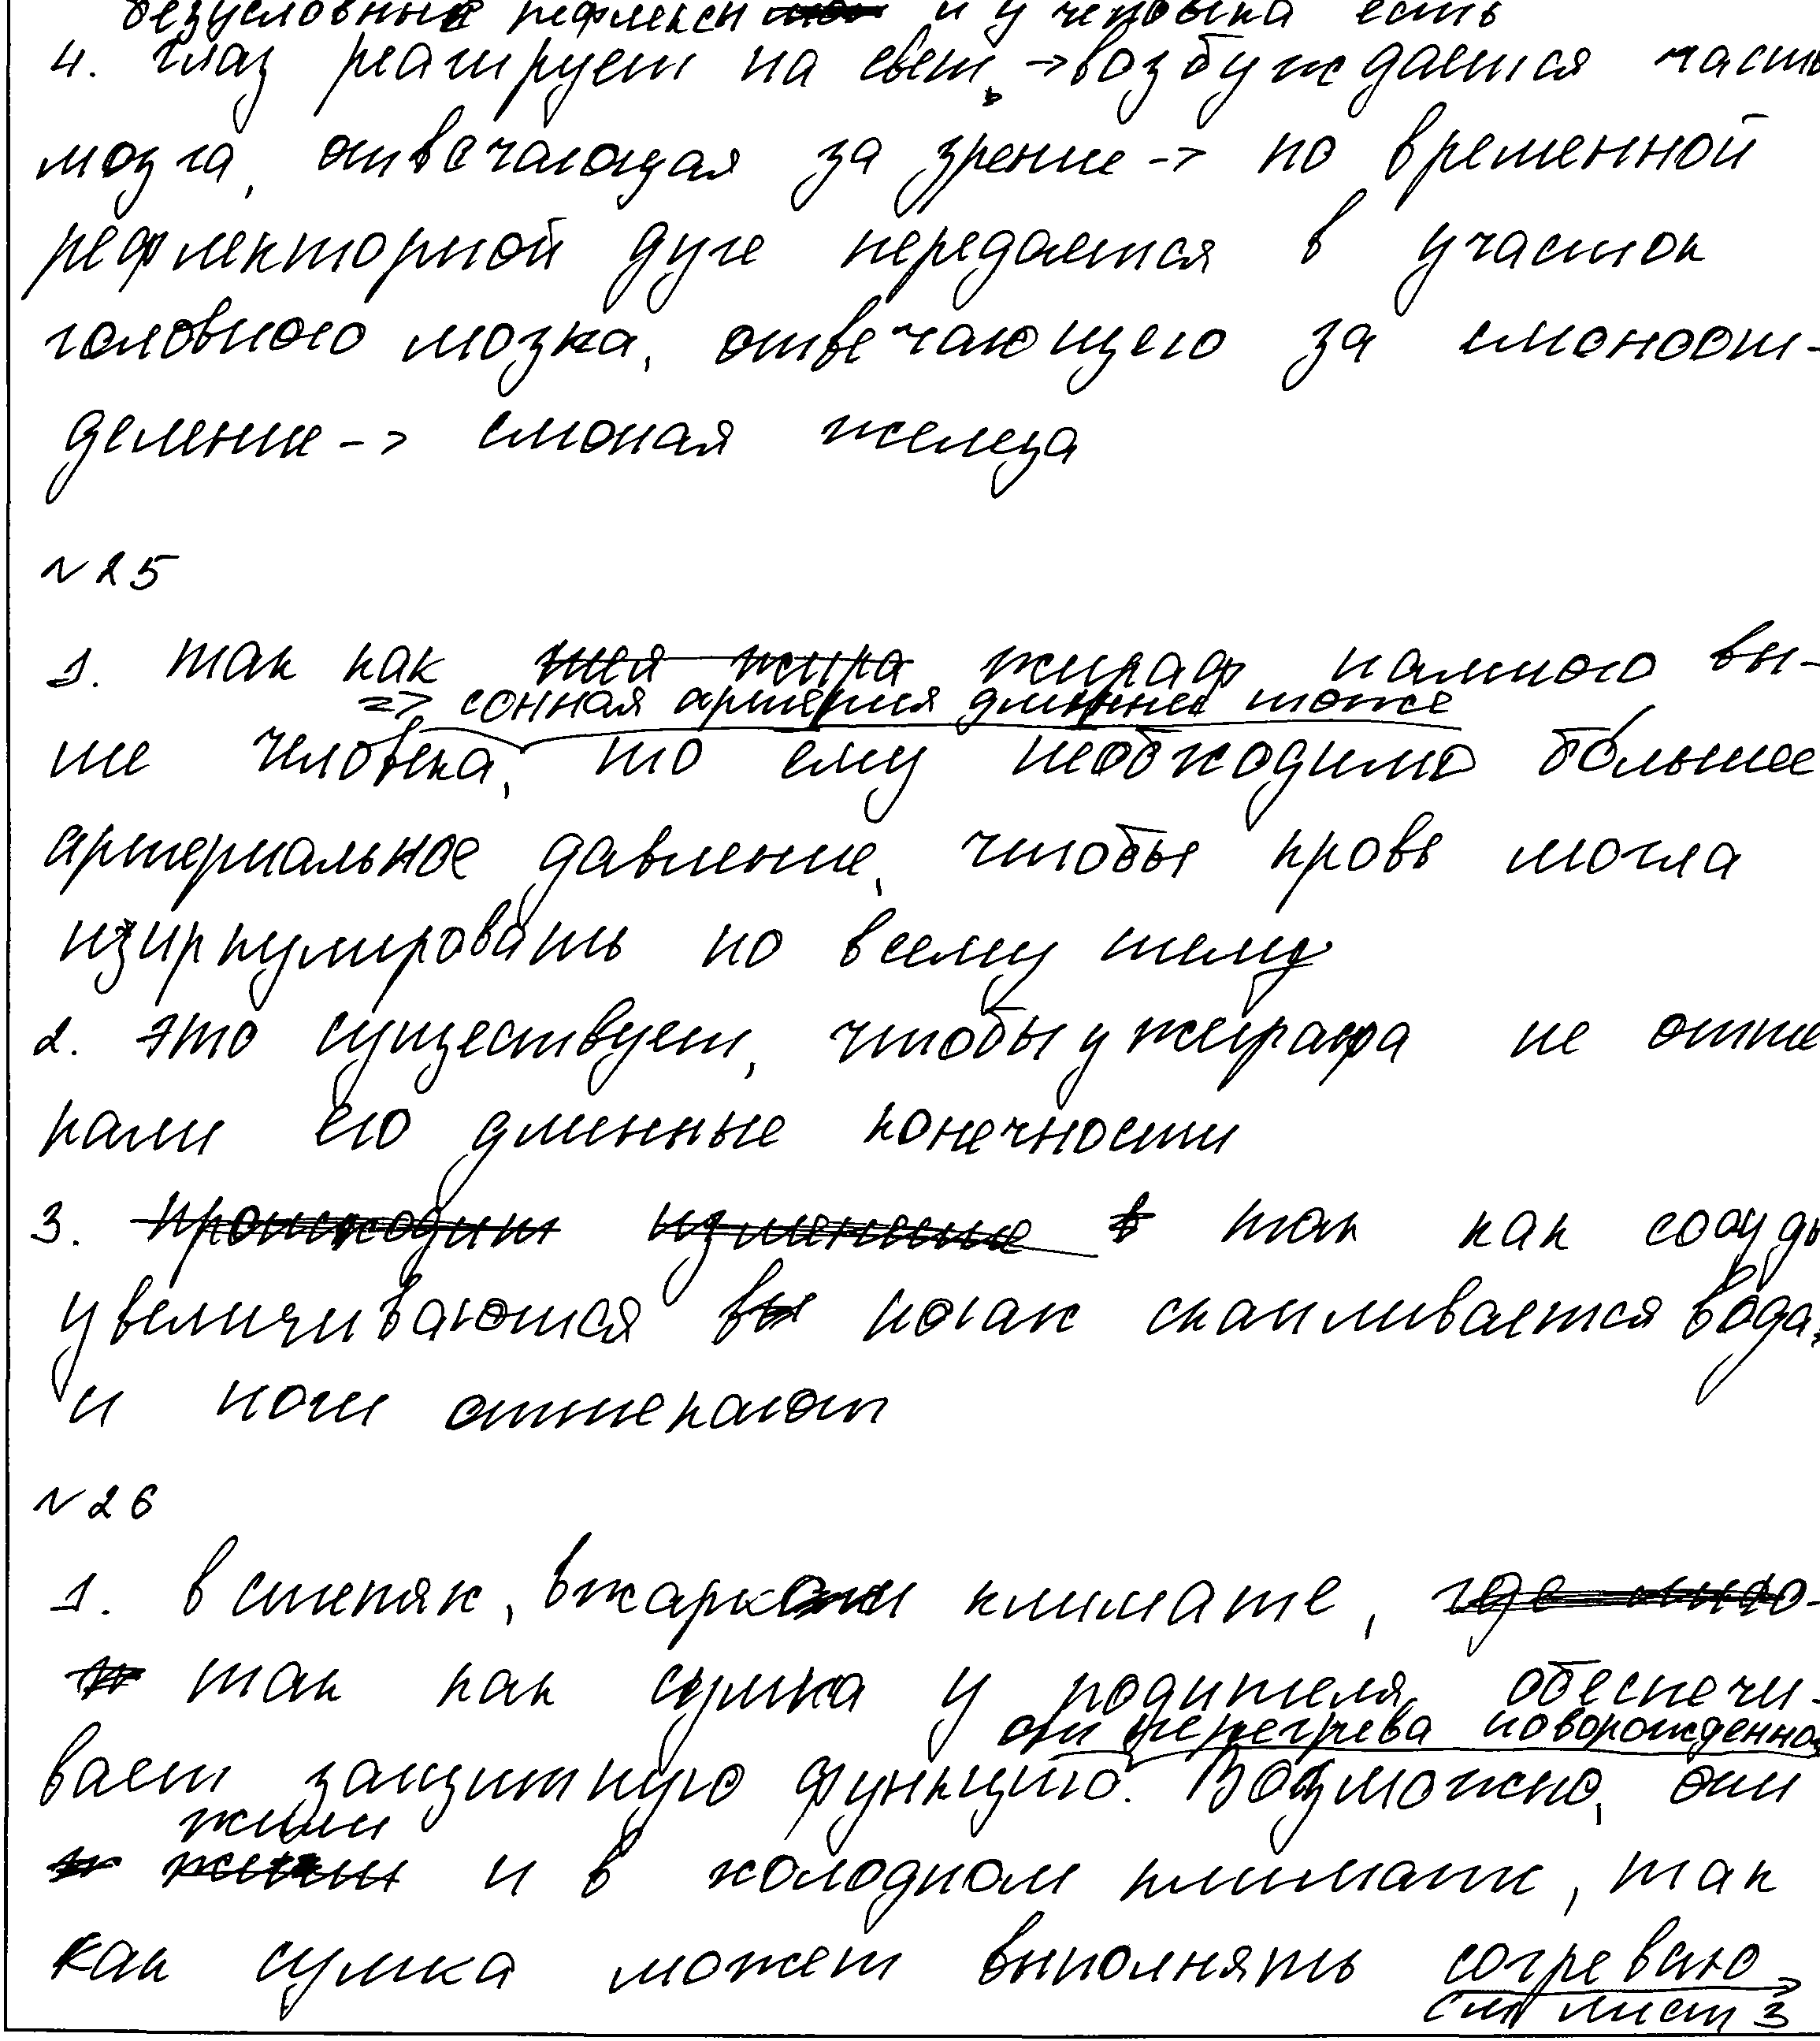 безусловные рефлексы и у человека есть
4. глаз реагирует на свет, -> возбуждается часть
мозга, отвечающая за зрение -> по временной
рефлекторной дуге передается в участок
головного мозка, отвечающего за слюноот-
деление -> слюная железа
№25
1. так как шея жира жираф намного вы-
=> сонная артерия длиннее тоже
ше человека, то ему необходимо большее
артериальное давление, чтобы кровь могла
циркулировать по всему телу
2. это существует, чтобы у жирафа не отте
кали его длинные конечности
3. происходит изменение в так как сосуды
увеличиваются в ногах скапливается вода,
и ноги оттекают
№26
1. в степях, в жарком климате, где мно-
так как сумка у родителя обеспечи-
от перегрева новорожденно
вает защитную функцию. Возможно, они
жили
и в холодном климате, так
как сумка может выполнять согреваю
см лист 3